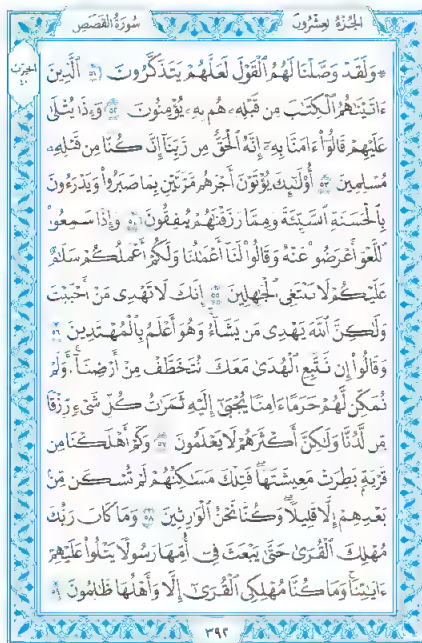 الجزء العشرون
سورة القصص
الحزب
٤٠
۞ وَلَقَدْ وَصَّلْنَا لَهُمُ الْقَوْلَ لَعَلَّهُمْ يَتَذَكَّرُونَ ٥١ الَّذِينَ
ءَاتَيْنَٰهُمُ الْكِتَٰبَ مِن قَبْلِهِۦ هُم بِهِۦ يُؤْمِنُونَ ٥٢ وَإِذَا يُتْلَىٰ
عَلَيْهِمْ قَالُوٓا۟ ءَامَنَّا بِهِۦٓ إِنَّهُ الْحَقُّ مِن رَّبِّنَآ إِنَّا كُنَّا مِن قَبْلِهِۦ
مُسْلِمِينَ ٥٣ أُو۟لَٰٓئِكَ يُؤْتَوْنَ أَجْرَهُم مَّرَّتَيْنِ بِمَا صَبَرُوا۟ وَيَدْرَءُونَ
بِالْحَسَنَةِ السَّيِّئَةَ وَمِمَّا رَزَقْنَٰهُمْ يُنفِقُونَ ٥٤ وَإِذَا سَمِعُوا۟
اللَّغْوَ أَعْرَضُوا۟ عَنْهُ وَقَالُوا۟ لَنَآ أَعْمَٰلُنَا وَلَكُمْ أَعْمَٰلُكُمْ سَلَٰمٌ
عَلَيْكُمْ لَا نَبْتَغِى الْجَٰهِلِينَ ٥٥ إِنَّكَ لَا تَهْدِى مَنْ أَحْبَبْتَ
وَلَٰكِنَّ اللَّهَ يَهْدِى مَن يَشَآءُ وَهُوَ أَعْلَمُ بِالْمُهْتَدِينَ ٥٦
وَقَالُوٓا۟ إِن نَّتَّبِعِ الْهُدَىٰ مَعَكَ نُتَخَطَّفْ مِنْ أَرْضِنَآ أَوَلَمْ
نُمَكِّن لَّهُمْ حَرَمًا ءَامِنًا يُجْبَىٰٓ إِلَيْهِ ثَمَرَٰتُ كُلِّ شَىْءٍ رِّزْقًا
مِّن لَّدُنَّا وَلَٰكِنَّ أَكْثَرَهُمْ لَا يَعْلَمُونَ ٥٧ وَكَمْ أَهْلَكْنَا مِن
قَرْيَةٍۭ بَطِرَتْ مَعِيشَتَهَا فَتِلْكَ مَسَٰكِنُهُمْ لَمْ تُسْكَن مِّنۢ
بَعْدِهِمْ إِلَّا قَلِيلًا وَكُنَّا نَحْنُ الْوَٰرِثِينَ ٥٨ وَمَا كَانَ رَبُّكَ
مُهْلِكَ الْقُرَىٰ حَتَّىٰ يَبْعَثَ فِىٓ أُمِّهَا رَسُولًا يَتْلُوا۟ عَلَيْهِمْ
ءَايَٰتِنَا وَمَا كُنَّا مُهْلِكِى الْقُرَىٰٓ إِلَّا وَأَهْلُهَا ظَٰلِمُونَ ٥٩
٣٩٢